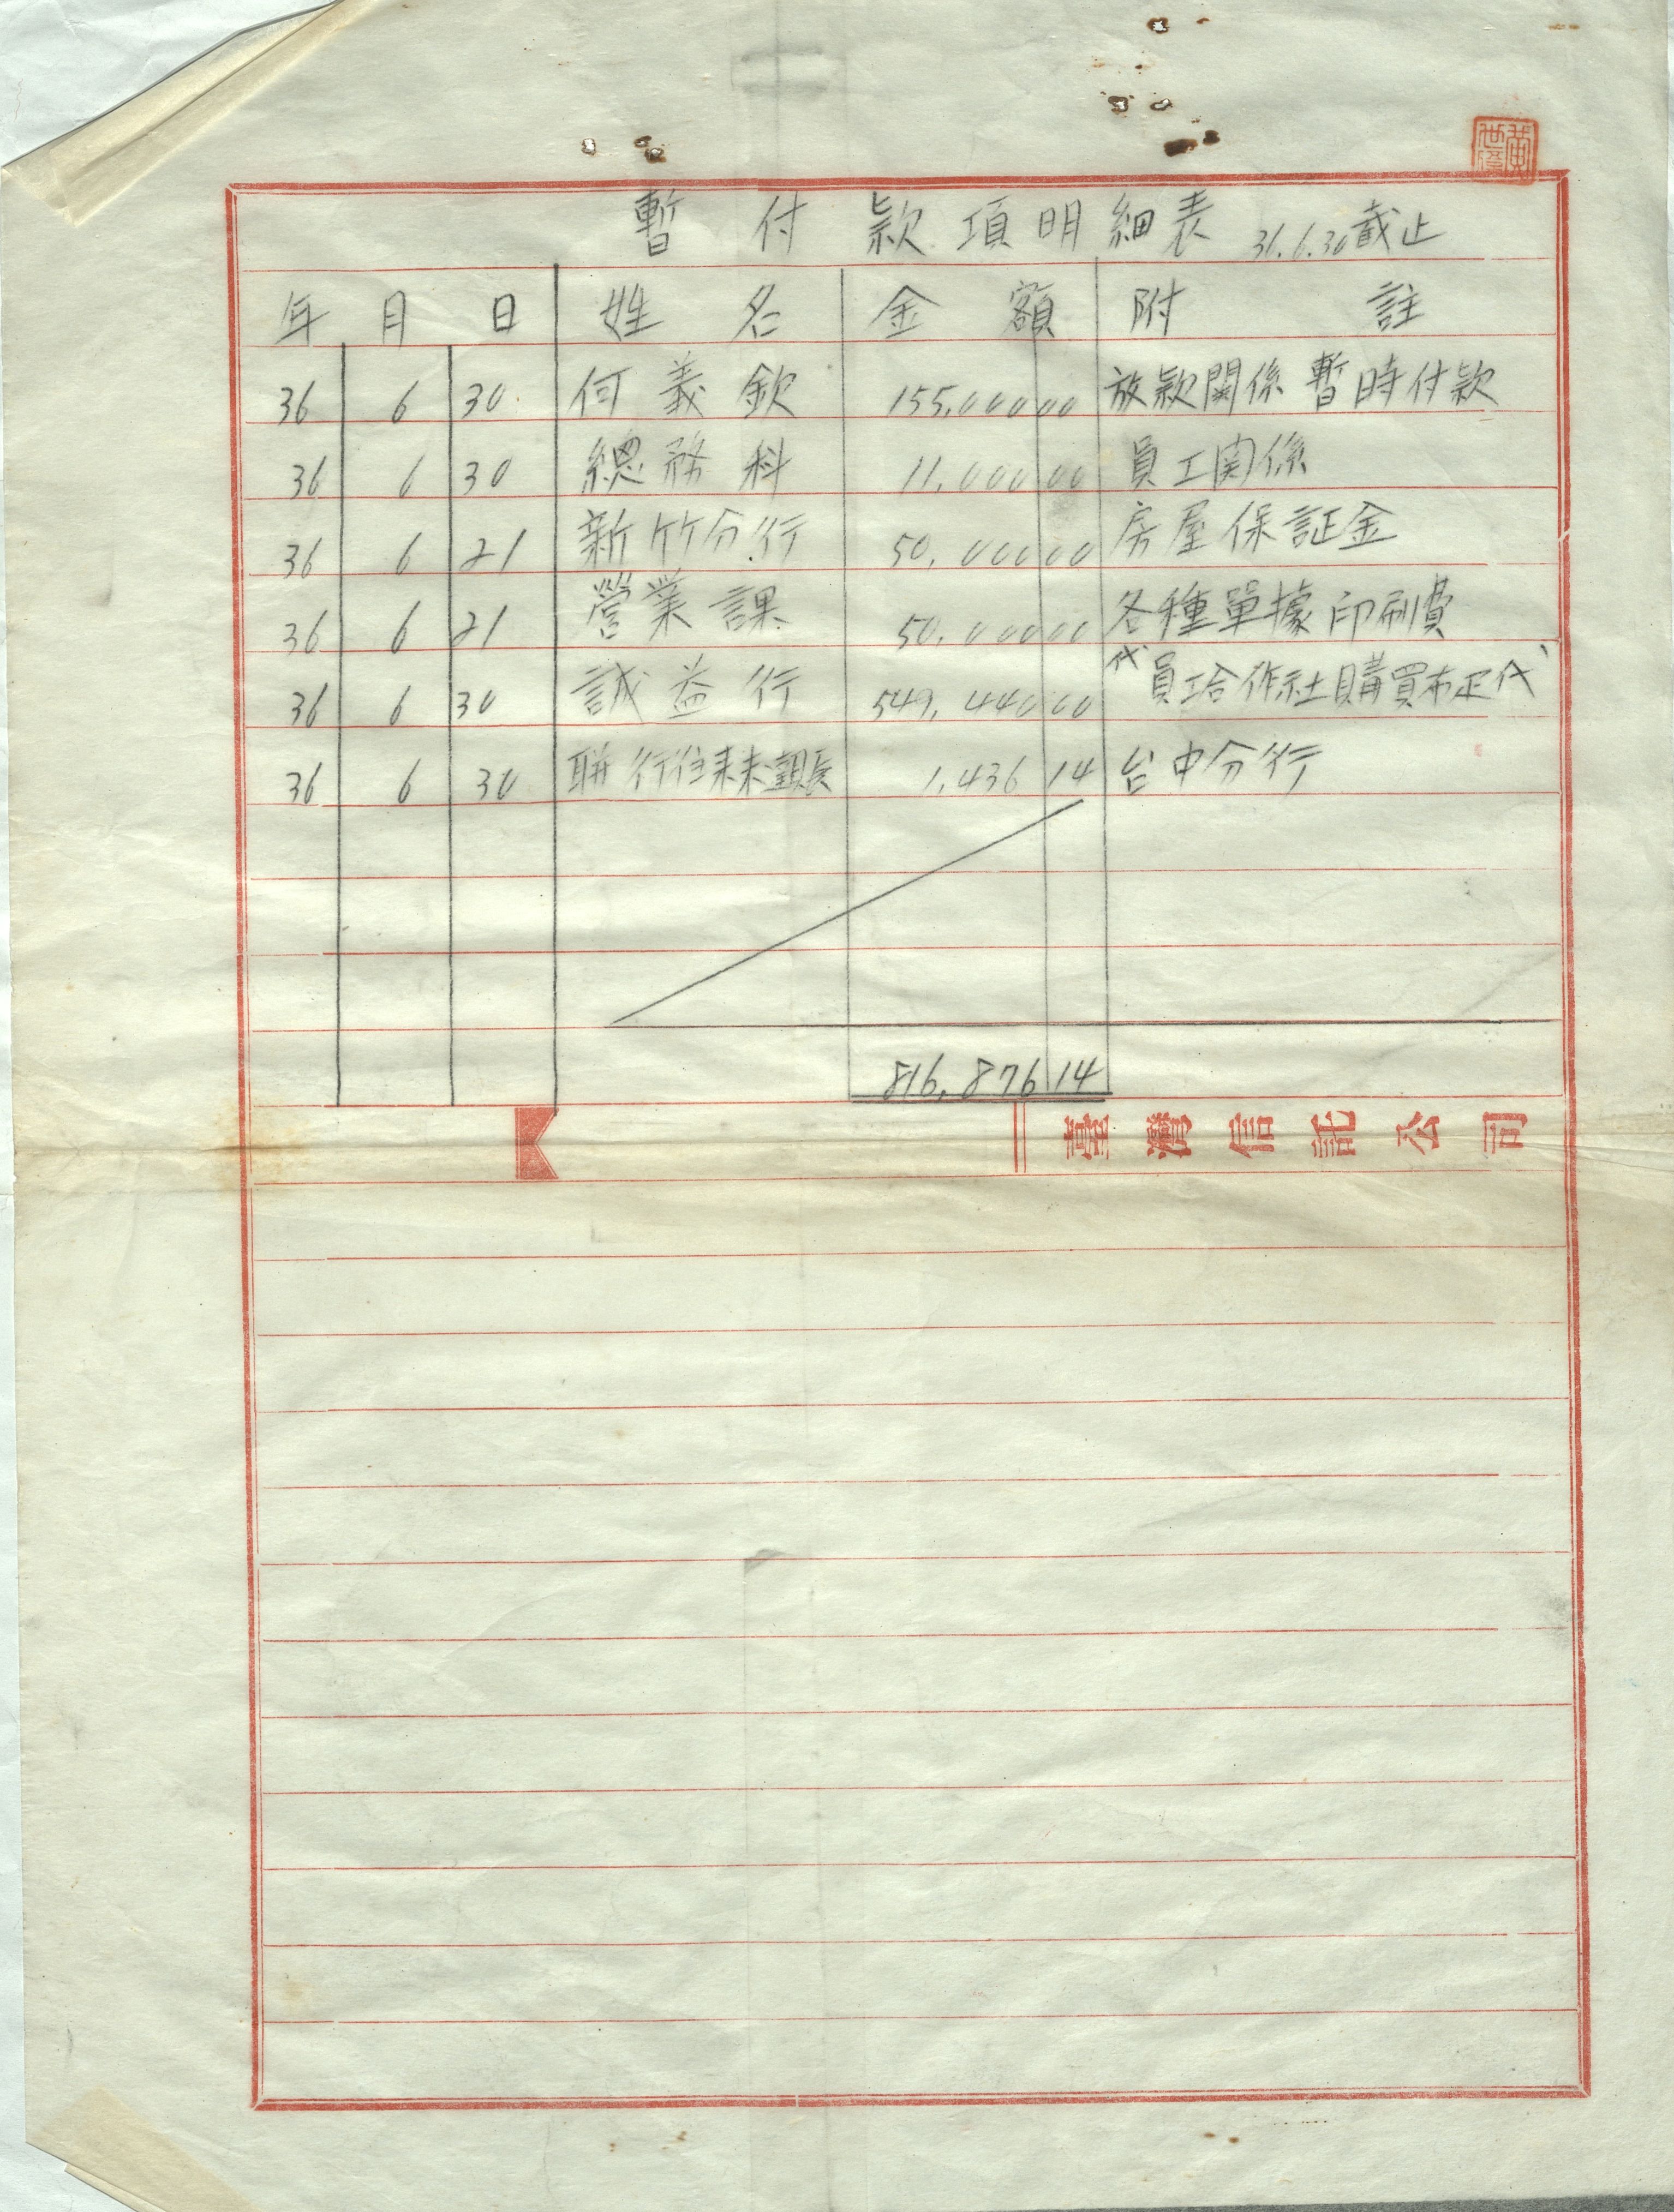 暫付款項明細表 36.6.30截止
年 月 日 姓名 金額 附註
36 6 30 何義欽 155,000 00 放款関係暫時付款
36 6 30 總務科 11,000 00 員工関係
36 6 21 新竹分行 50,000 00 房屋保証金
36 6 21 營業課 50,000 00 各種單據印刷費
36 6 30 誠益行 549,440 00 代員工合作社購買布疋代
36 6 30 聯行往来未達 1,436 14 台中分行
816,876 14
臺灣信託公司